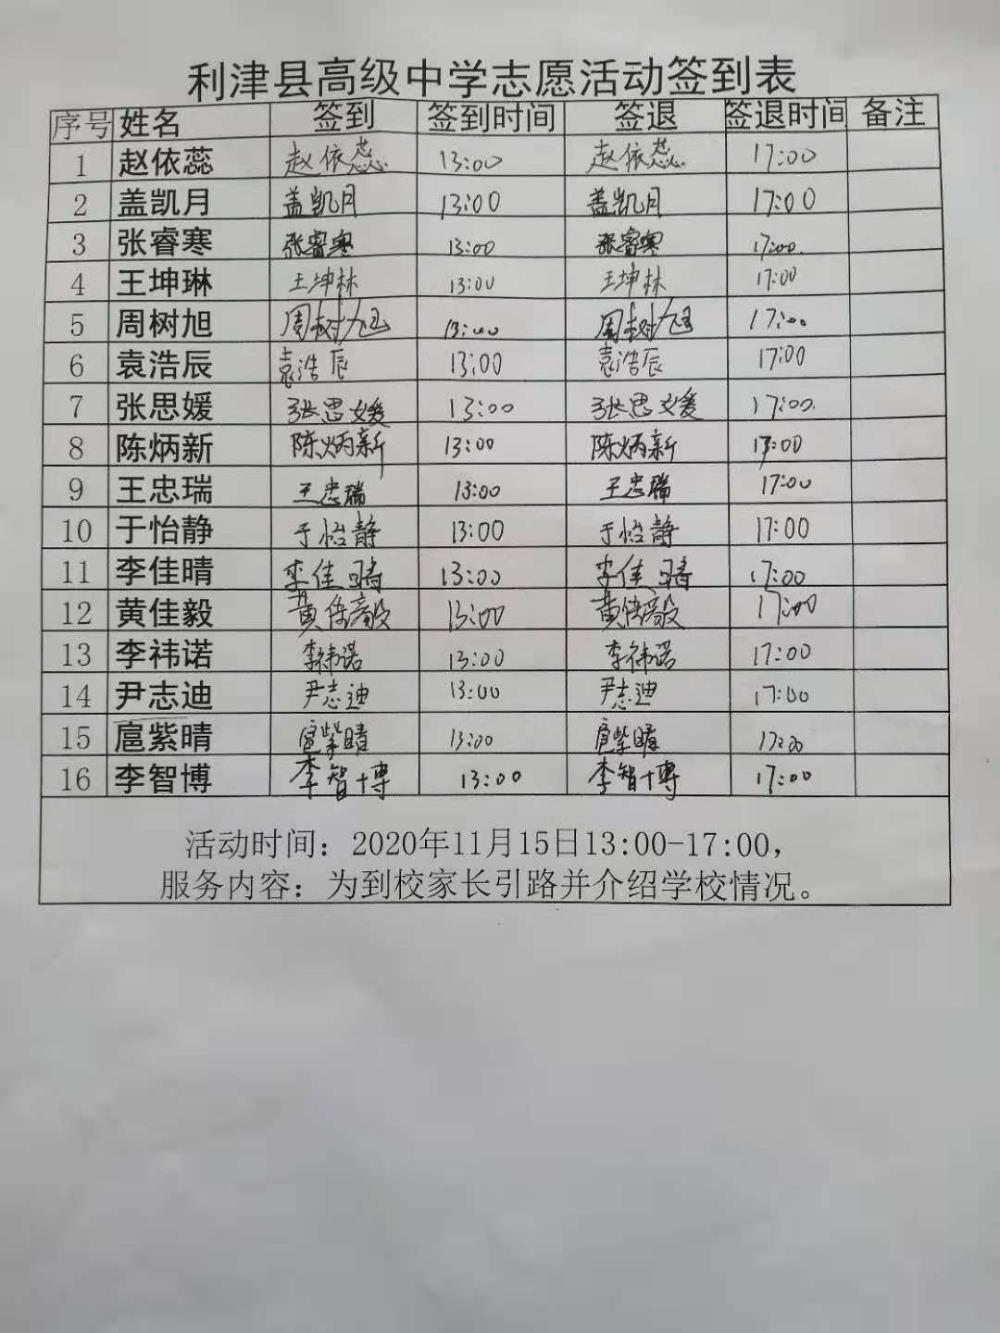 利津县高级中学志愿活动签到表
序号 姓名 签到 签到时间 签退 签退时间 备注
1 赵依蕊 赵依蕊 13:00 赵依蕊 17:00
2 盖凯月 盖凯月 13:00 盖凯月 17:00
3 张睿寒 张睿寒 13:00 张睿寒 17:00
4 王坤琳 王坤林 13:00 王坤林 17:00
5 周树旭 周树旭 13:00 周树旭 17:00
6 袁浩辰 袁浩辰 13:00 袁浩辰 17:00
7 张思媛 张思媛 13:00 张思媛 17:00
8 陈炳新 陈炳新 13:00 陈炳新 17:00
9 王忠瑞 王忠瑞 13:00 王忠瑞 17:00
10 于怡静 于怡静 13:00 于怡静 17:00
11 李佳晴 李佳晴 13:00 李佳晴 17:00
12 黄佳毅 黄佳毅 13:00 黄佳毅 17:00
13 李祎诺 李祎诺 13:00 李祎诺 17:00
14 尹志迪 尹志迪 13:00 尹志迪 17:00
15 扈紫晴 扈紫晴 13:00 扈紫晴 17:00
16 李智博 李智博 13:00 李智博 17:00
活动时间：2020年11月15日13:00-17:00，
服务内容：为到校家长引路并介绍学校情况。